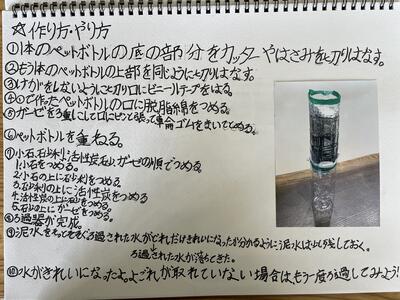 ☆作り方・やり方
①1本のペットボトルの底の部分をカッターやはさみを切りはなす。
②もう1本のペットボトルの上部を同じように切りはなす。
③けがをしないように切り口にビニールテープをはる。
④①で作ったペットボトルの口に脱脂綿をつめる。
⑤ガーゼを3重にして口にピンと張って輪ゴムをまいてとめる。
⑥ペットボトルを重ねる。
⑦小石、石少利、活性炭、石少、ガーゼの順でつめる。
1.小石をつめる。
2.小石の上に石少利をつめる。
3.石少利の上に活性炭をつめる
4.活性炭の上に石少をつめる。
5.石少の上にガーゼをつめる。
⑧ろ過器が完成。
⑨泥水をそそぐろ過された水がどれだけきれいになったか分かるように泥水は少し残しておく。
ろ過された水が落ちてきた。
⑩水がきれいになったよ。よごれが取れていない場合は、もう一度ろ過してみよう!